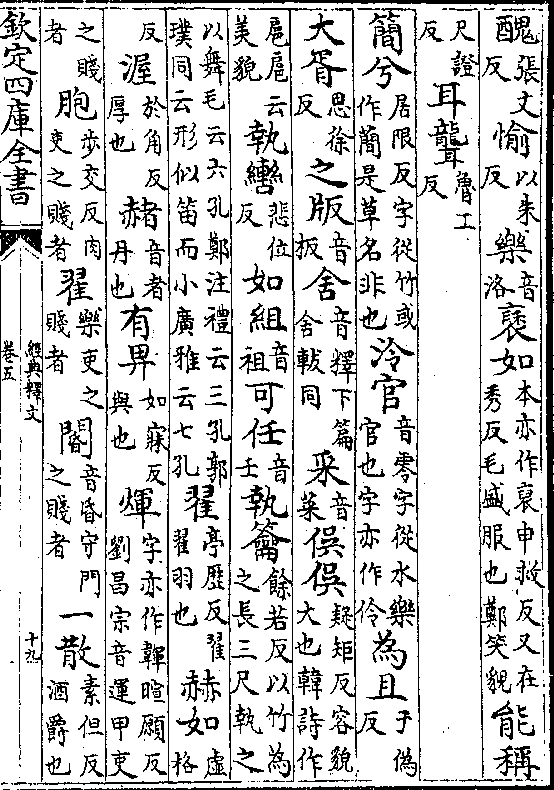 醜張文反愉以朱反樂音洛褎如本亦作裒申救反又在秀反毛盛服也鄭笑貌能稱
尺證反耳聾魯工反
簡兮居限反字從竹或作簡是草名非也泠官音零字從水樂官也字亦作伶為且于偽反
大胥思徐反之版音板舍音釋下篇舍軷同采音菜俁俁疑矩反容貌大也韓詩作
扈扈云美貌執轡悲位反如組音祖可任音壬執籥餘若反以竹為之長三尺執之
以舞毛云六孔鄭注禮云三孔郭璞同云形似笛而小廣雅云七孔翟亭歷反翟翟羽也赫如虛格
反渥於角反厚也赭音者丹也有畀如寐反與也煇字亦作韗暄願反劉昌宗音運甲吏
之賤者胞步交反肉吏之賤者翟樂吏之賤者閽音昏守門之賤者一散素但反酒爵也
欽定四庫全書
經典釋文
卷五
十九